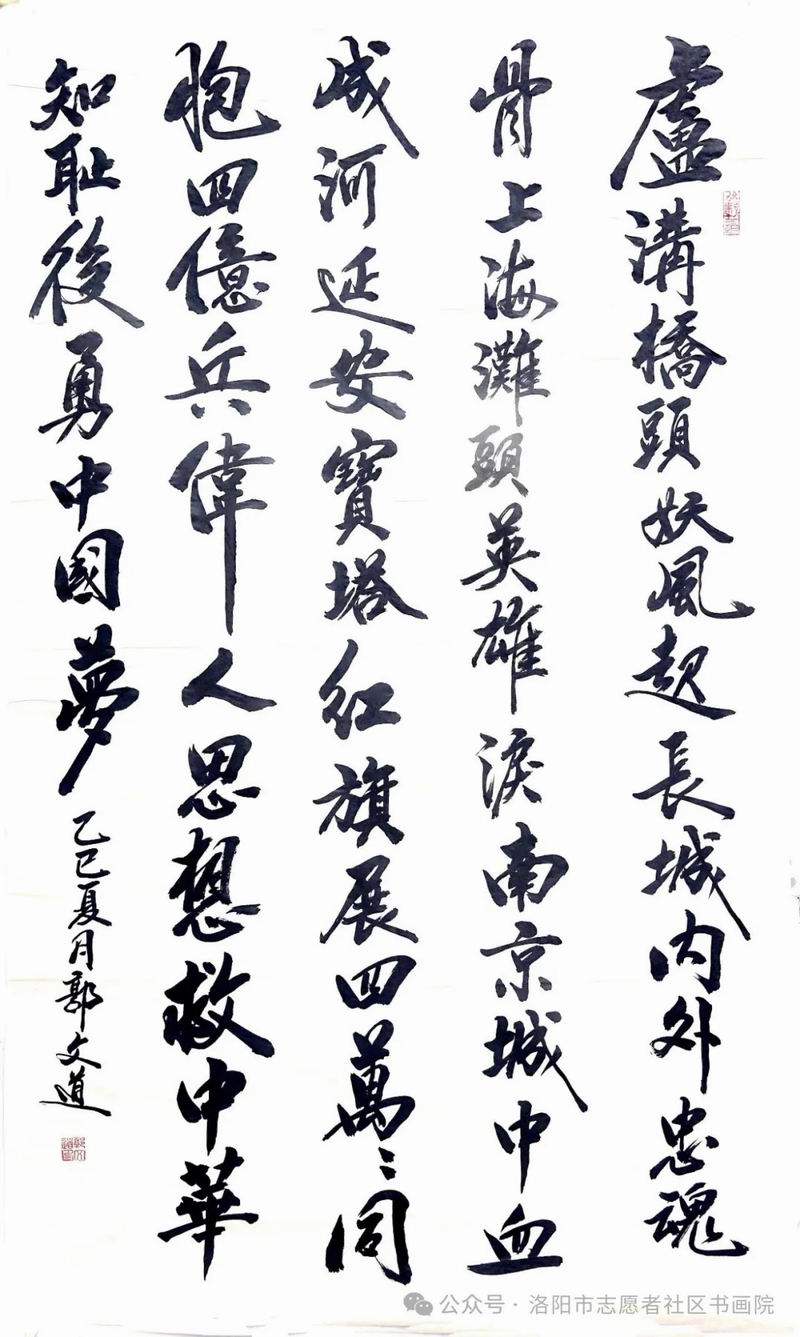 盧溝橋頭妖風起長城内外忠魂
骨上海灘頭英雄淚南京城中血
成河延安寶塔紅旗展四萬萬同
胞四億兵偉人思想救中華
知耻後勇中國夢
乙巳夏月郭文道
公众号·洛阳市志愿者社区书画院